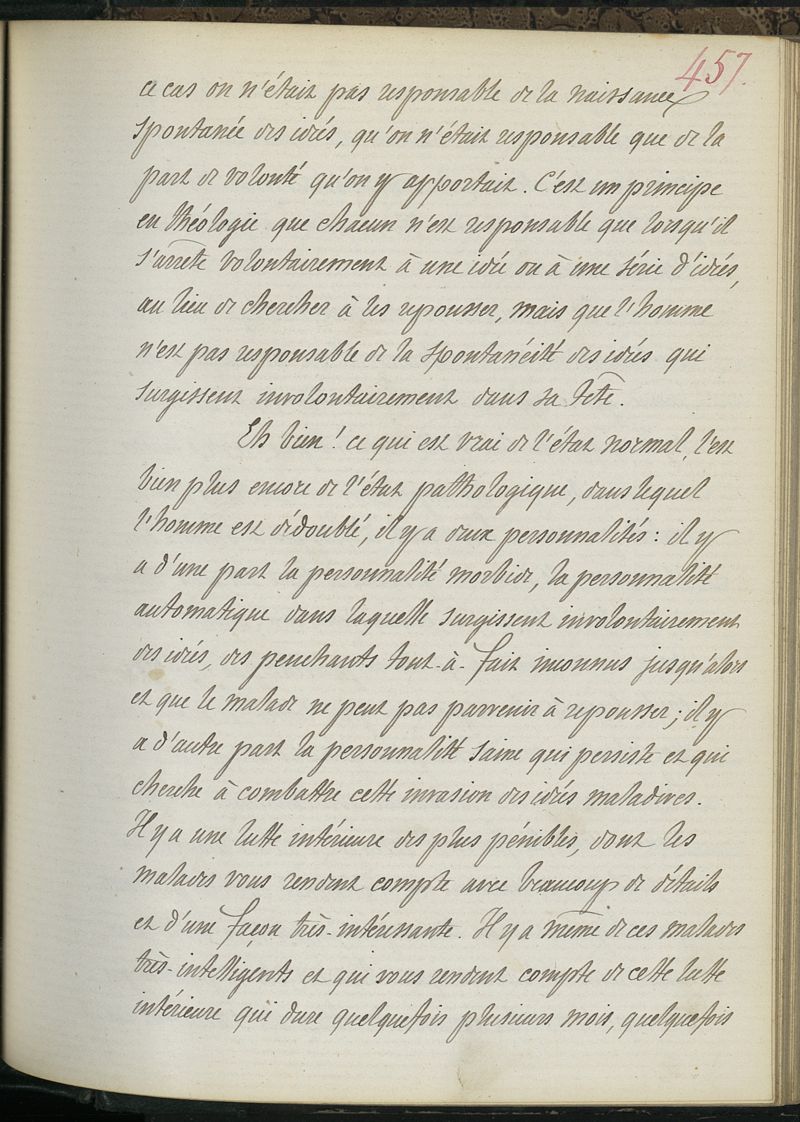 457.
ce cas on n'était pas responsable de la naissance
spontanée des idées, qu'on n'était responsable que de la
part de volonté qu'on y apportait. C'est un principe
en théologie que chacun n'est responsable que lorsqu'il
s'arrête volontairement à une idée ou à une série d'idées,
au lieu de chercher à les repousser, mais que l'homme
n'est pas responsable de la spontanéité des idées qui
surgissent involontairement dans sa tête.
Eh bien! ce qui est vrai de l'état normal, l'est
bien plus encore de l'état pathologique, dans lequel
l'homme est dédoublé, il y a deux personnalités: il y
a d'une part la personnalité morbide, la personnalité
automatique dans laquelle surgissent involontairement
des idées, des penchants tout-à-fait inconnus jusqu'alors
et que le malade ne peut pas parvenir à repousser; il y
a d'autre part la personnalité saine qui persiste et qui
cherche à combattre cette invasion des idées maladives.
Il y a une lutte intérieure des plus pénibles, dont les
malades vous rendent compte avec beaucoup de détails
et d'une façon très-intéressante. Il y a même de ces malades
très-intelligents et qui vous rendent compte de cette lutte
intérieure qui dure quelquefois plusieurs mois, quelquefois